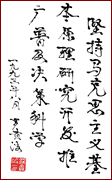 坚持马克思主义基
本原理研究开发推
广普及决策科学
一九九六年八月